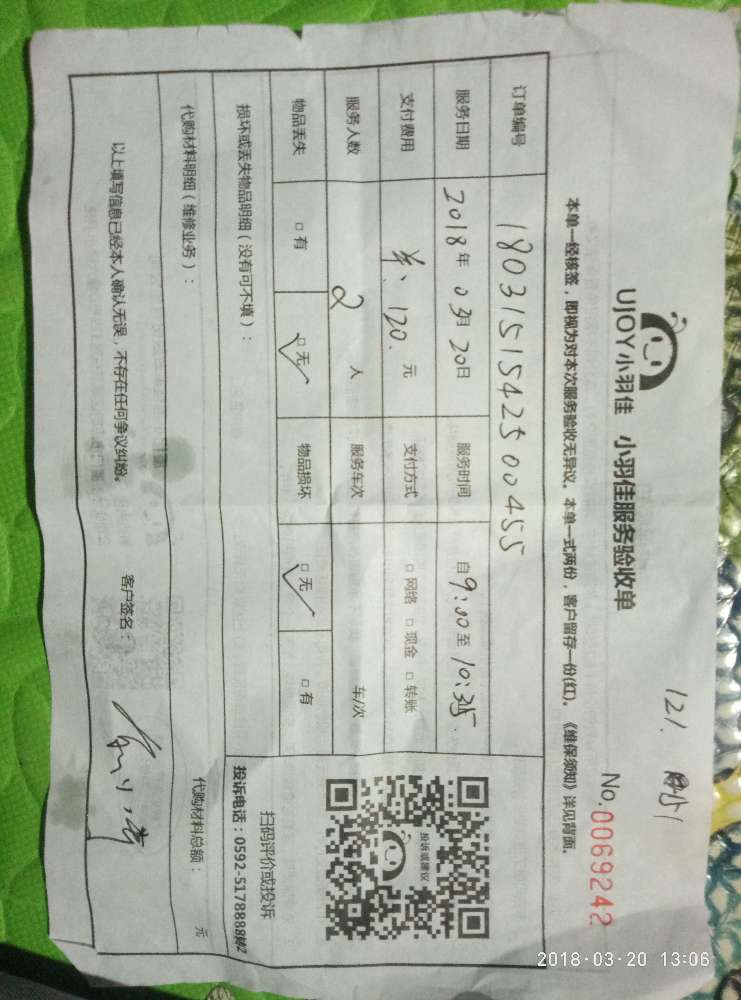 121.
UJOY小羽佳 小羽佳服务验收单
No.0069242
本单一经核签，即视为对本次服务验收无异议。本单一式两份，客户留存一份(红)。《维保须知》详见背面。
订单编号 1803151542500455
服务日期 2018年03月20日 服务时间 自9:00至10:35.
支付费用 羊、120.元 支付方式 □网络 □现金 □转账
服务人数 2人 服务车次 车/次
物品丢失 □有 □无✓ 物品损坏 □无✓ □有
投诉或建议
扫码评价或投诉
投诉电话：0592-5178888转2
损坏或丢失物品明细（没有可不填）：
代购材料明细（维修业务）： 代购材料总额： 元
以上填写信息已经本人确认无误，不存在任何争议纠纷。 客户签名：
2018-03-20 13:06